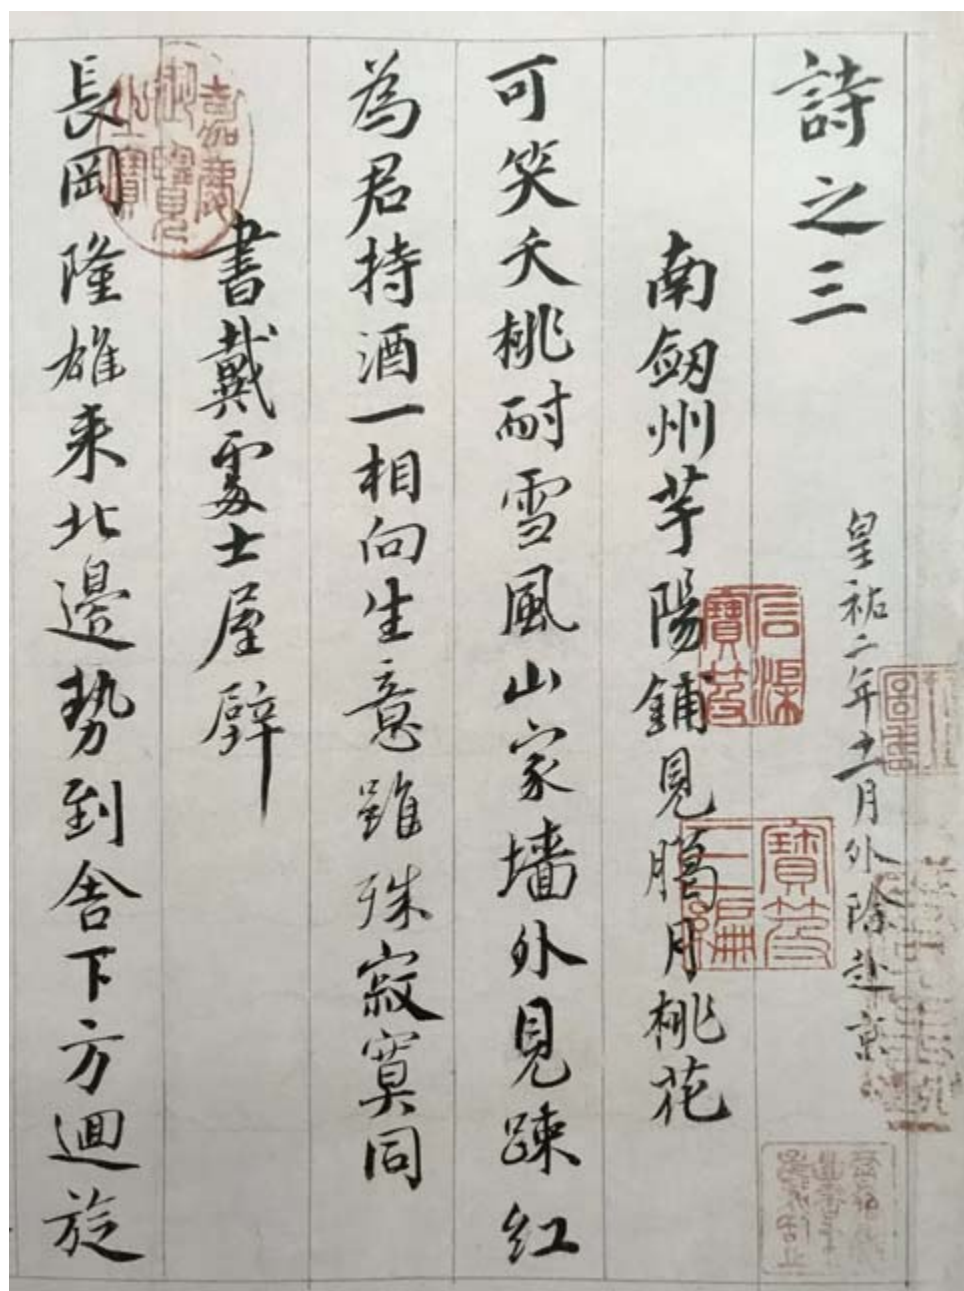 詩之三
皇祐二年十一月外除赴京
南劔州芋陽鋪見臈月桃花
可笑夭桃耐雪風山家墻外見踈紅
為君持酒一相向生意雖殊寂寞同
書戴處士屋壁
長岡隆雄来北邊勢到舍下方迴旋
嘉慶御覽之寳